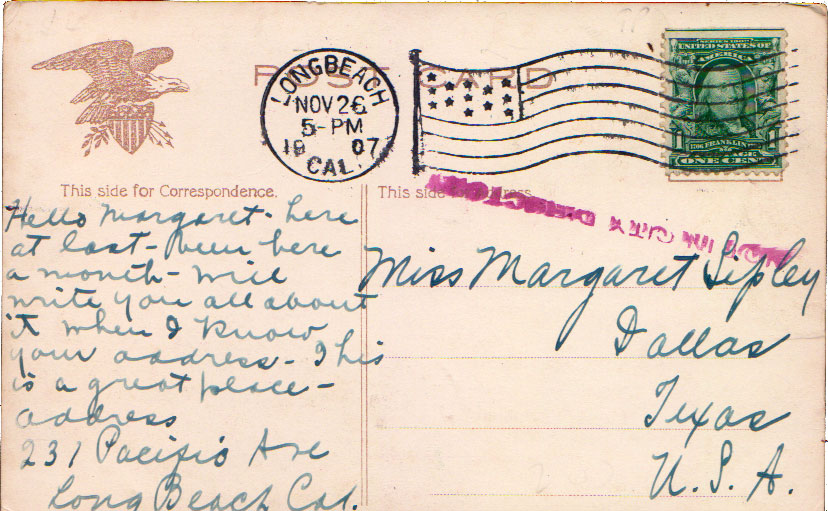 POST CARD
LONG BEACH
NOV 26
5-PM
1907
CAL.
SERIES 1902
UNITED STATES OF
AMERICA
1706 FRANKLIN 1790
1
ONE CENT
This side for Correspondence.
Hello Margaret - here
at last - been here
a month - will
write you all about
it when I know
your address - This
is a great place -
address
231 Pacific Ave
Long Beach Cal.
This side for Address.
NOT IN CITY DIRECTORY
Miss Margaret Sipley
Dallas
Texas
U. S. A.